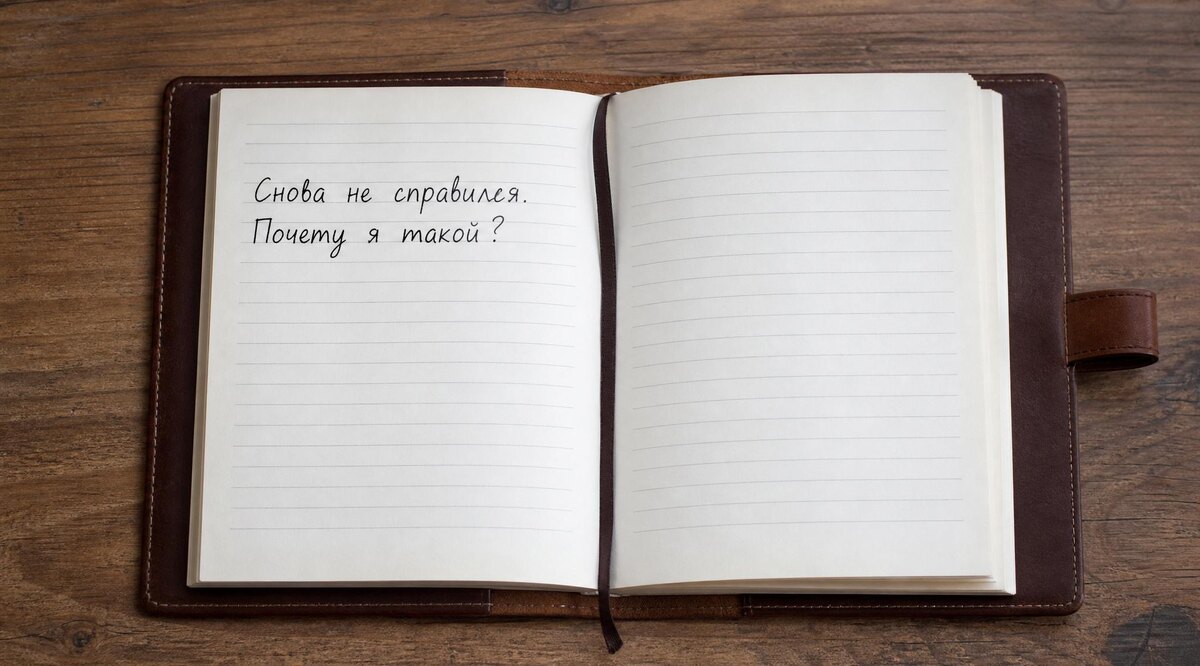 Снова не справился.
Почему я такой?